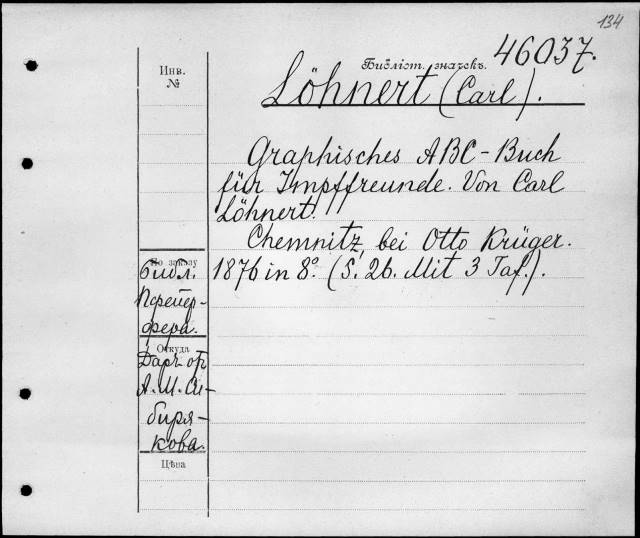 134
Библіот. значекъ. 46037.
Инв.
№
Löhnert (Carl).
Graphisches ABC-Buch
für Impffreunde. Von Carl
Löhnert.
Chemnitz, bei Otto Krüger.
1876 in 8º. (S. 26. Mit 3 Taf.).
По заказу
библ.
Порейер-
фера.
Откуда
Даръ отъ
А. М. Си-
биря-
кова.
Цѣна